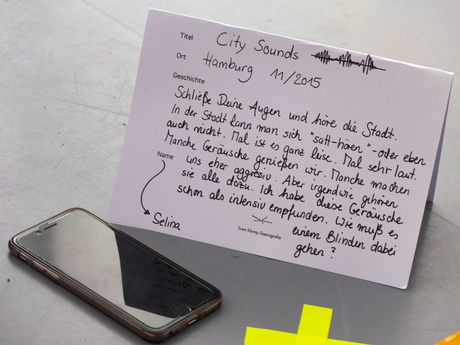 Titel City Sounds
Ort Hamburg 11/2015
Geschichte
Schließe Deine Augen und höre die Stadt.
In der Stadt kann man sich "satt-hören" - oder eben
auch nicht. Mal ist es ganz leise. Mal sehr laut.
Manche Geräusche genießen wir. Manche machen
uns eher aggressiv. Aber irgendwie gehören
sie alle dazu. Ich habe diese Geräusche
schon als intensiv empfunden. Wie muß es
einem Blinden dabei
gehen?
Name
Selina
Sven Klomp Szenografie